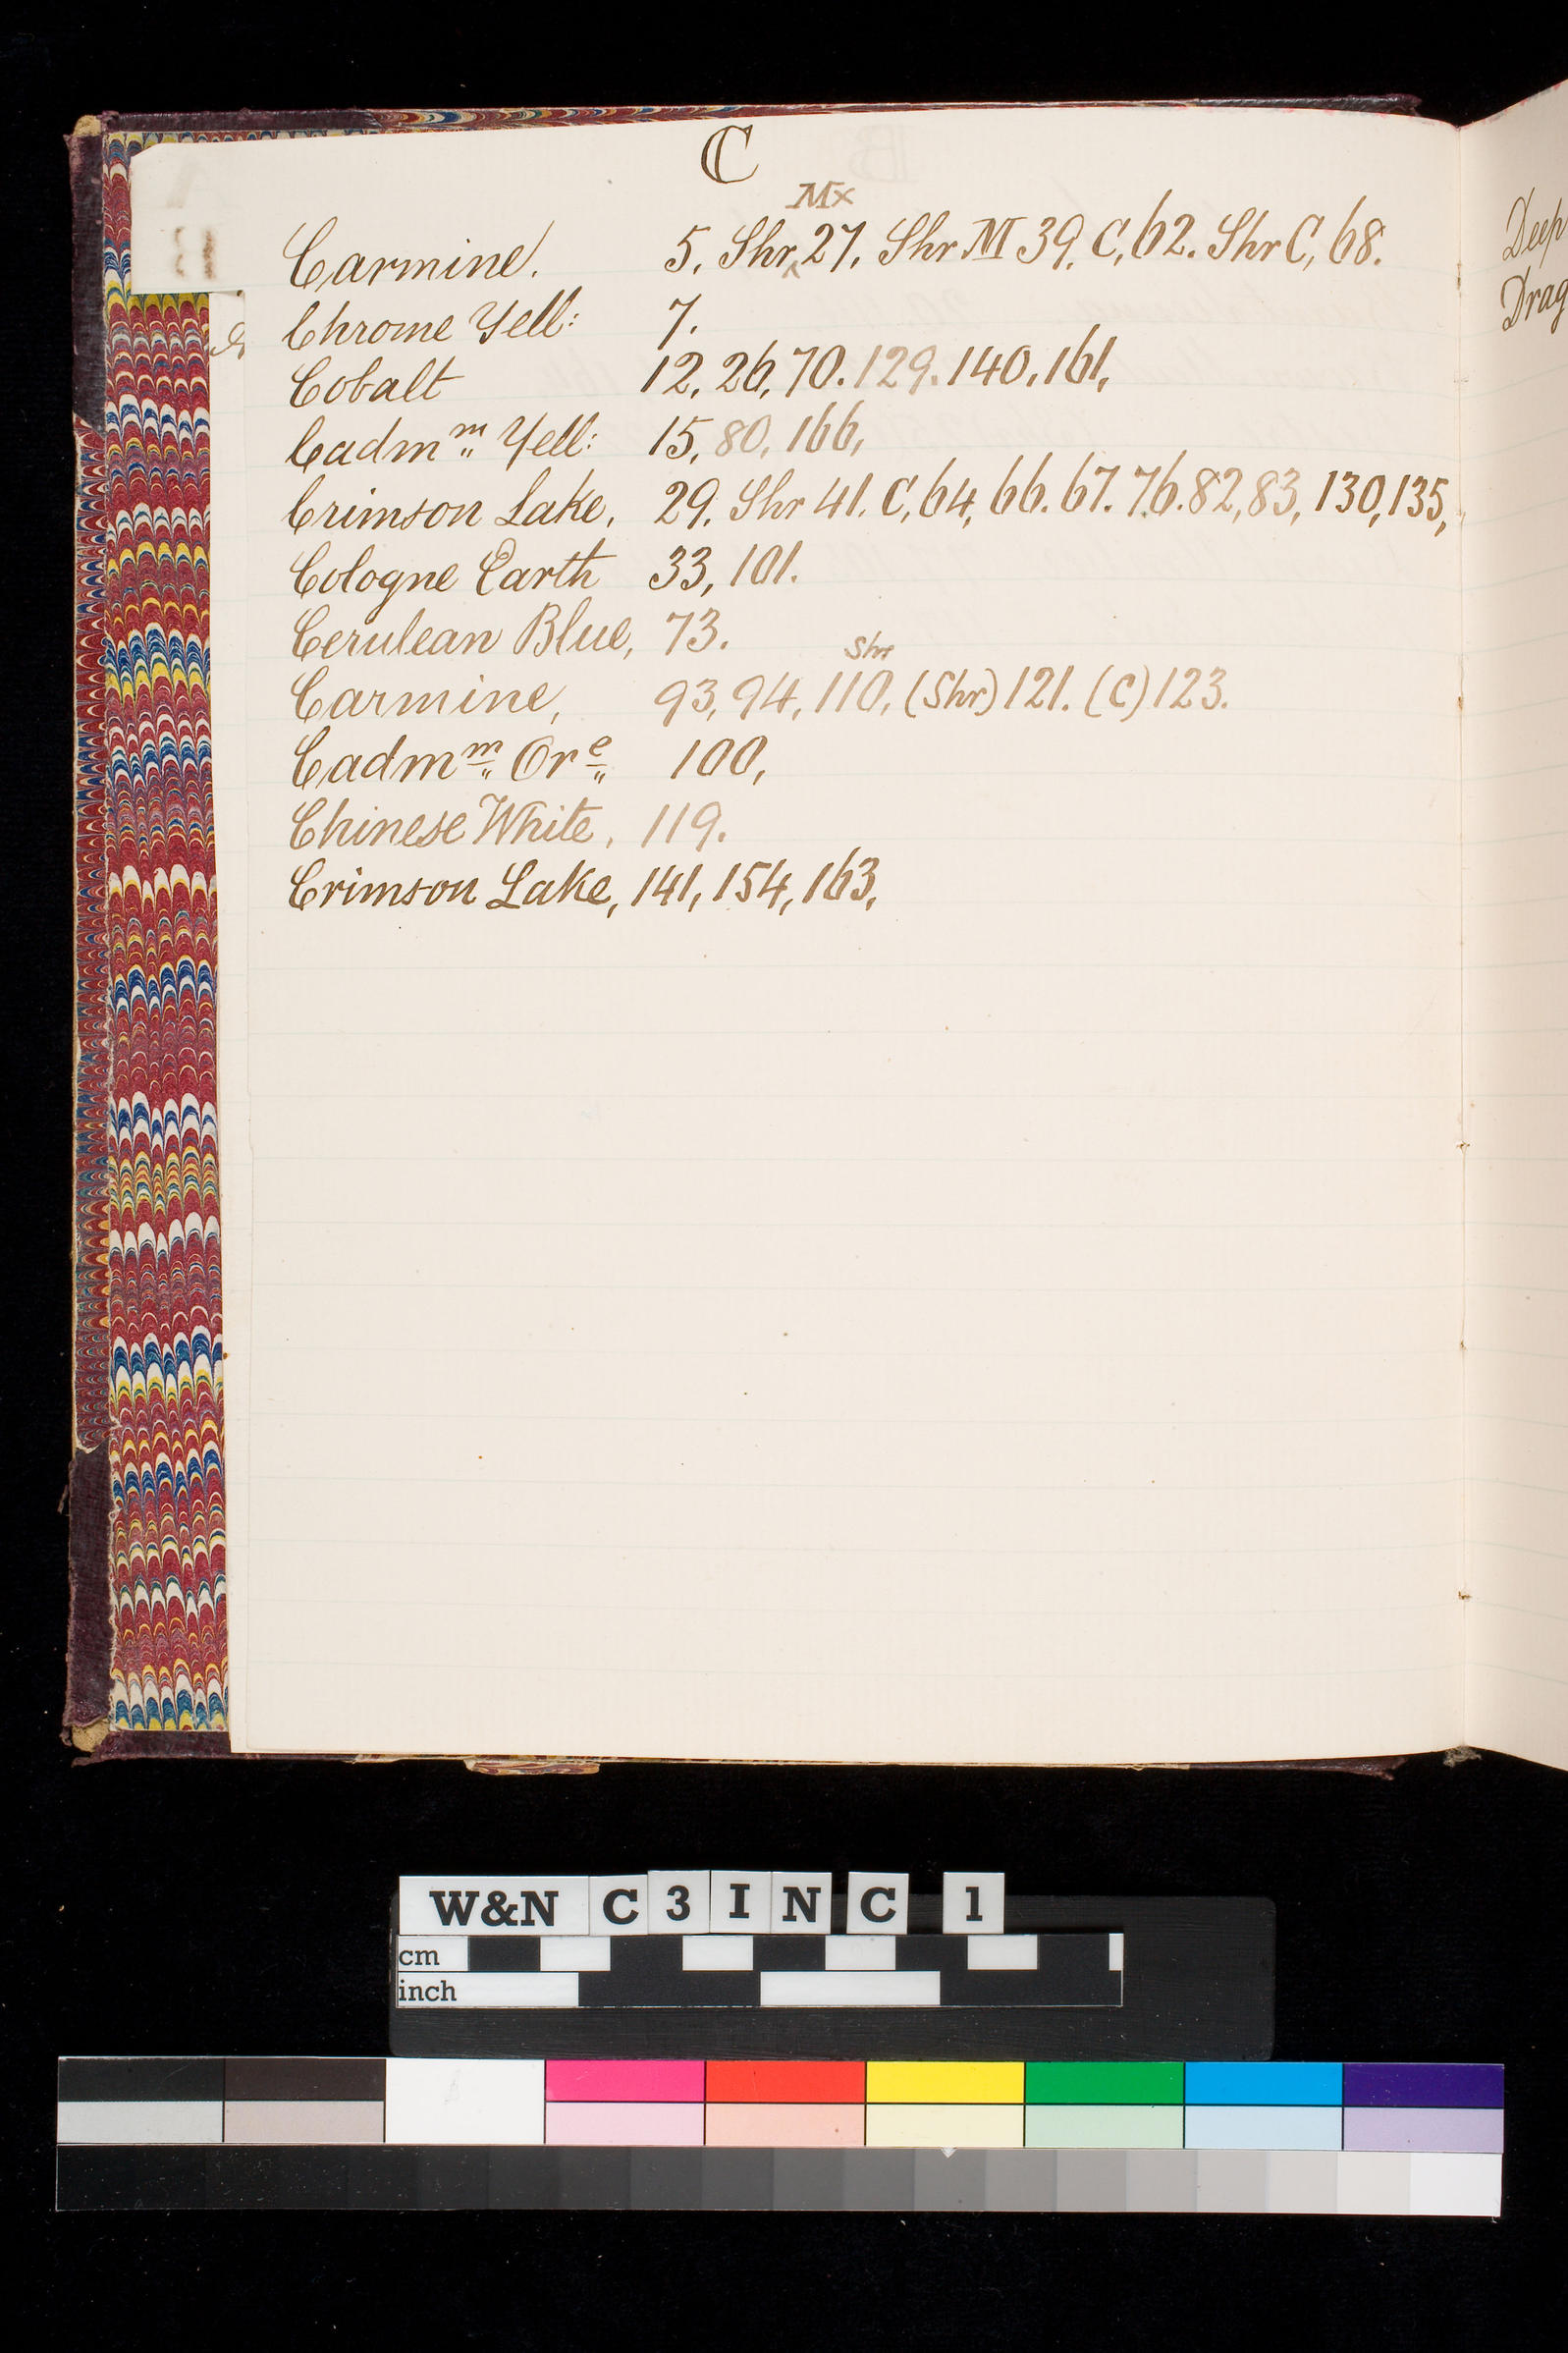 C
Carmine. 5, Shr Mx 27, Shr M 39, C, 62. Shr C, 68.
Chrome Yell: 7.
Cobalt 12, 26, 70. 129. 140, 161,
Cadm m Yell: 15, 80, 166,
Crimson Lake, 29, Shr 41. C, 64, 66. 67. 76. 82, 83, 130, 135,
Cologne Earth 33, 101.
Cerulean Blue, 73.
Carmine, 93, 94, Shr 110, (Shr) 121. (C) 123.
Cadm m Or e 100,
Chinese White, 119.
Crimson Lake, 141, 154, 163,
Deep
Drag
W&N C 3 I N C 1
cm
inch